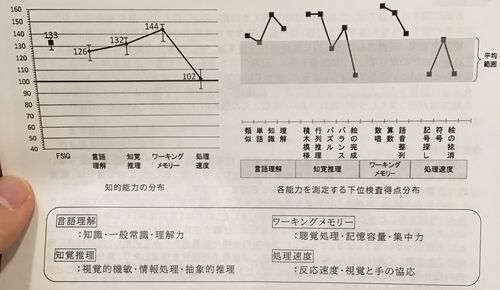 160
150
140
130
120
110
100
90
80
70
60
50
40
133
126
132
144
102
FSIQ
言語
理解
知覚
推理
ワーキング
メモリー
処理
速度
知的能力の分布
平均
範囲
類似
単語
知識
理解
積木模様
行列推理
パズル
バランス
絵の完成
数唱
算数
語音整列
記号探し
符号
絵の抹消
言語理解
知覚推理
ワーキング
メモリー
処理速度
各能力を測定する下位検査得点分布
言語理解
:知識・一般常識・理解力
知覚推理
:視覚的機敏・情報処理・抽象的推理
ワーキングメモリー
:聴覚処理・記憶容量・集中力
処理速度
:反応速度・視覚と手の協応